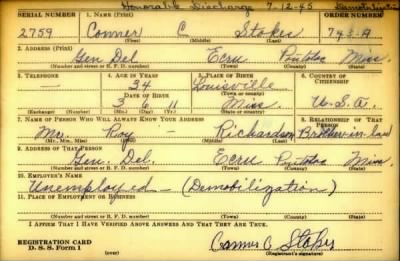 Honorable Discharge 7-12-45 Demobilization
SERIAL NUMBER 1. NAME (Print) ORDER NUMBER
2759 Conner C Stokes 743-A
2. ADDRESS (Print)
Gen Del Ecru Pontotoc Miss.
(Number and street or R. F. D. number) (Town) (County) (State)
3. TELEPHONE 4. AGE IN YEARS 5. PLACE OF BIRTH 6. COUNTRY OF CITIZENSHIP
— 34 Louisville
DATE OF BIRTH (Town or county)
3 6 11 Miss. U.S.A.
(Exchange) (Number) (Mo.) (Day) (Yr.) (State or country)
7. NAME OF PERSON WHO WILL ALWAYS KNOW YOUR ADDRESS 8. RELATIONSHIP OF THAT PERSON
Mr. Roy — Richardson Brother-in-law
(Mr., Mrs., Miss) (First) (Middle) (Last)
9. ADDRESS OF THAT PERSON
Gen. Del. Ecru Pontotoc Miss.
(Number and street or R. F. D. number) (Town) (County) (State)
10. EMPLOYER'S NAME
Unemployed — (Demobilization)
11. PLACE OF EMPLOYMENT OR BUSINESS
(Number and street or R. F. D. number) (Town) (County) (State)
I AFFIRM THAT I HAVE VERIFIED ABOVE ANSWERS AND THAT THEY ARE TRUE.
REGISTRATION CARD
D. S. S. Form 1 (over) Conner C Stokes
(Registrant's signature)